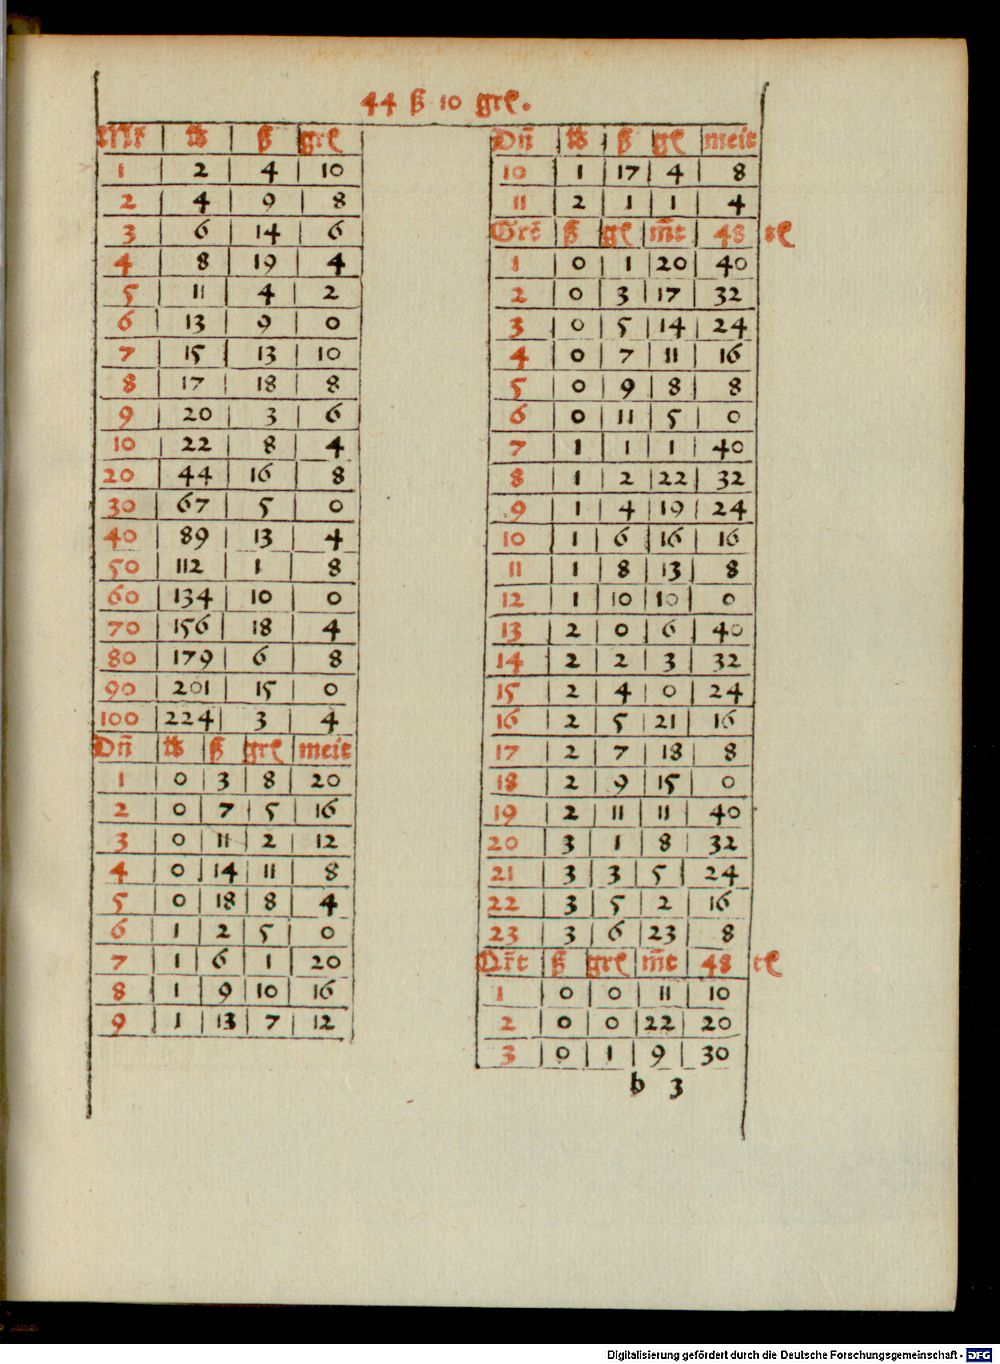 44 ß 10 grl.
Mr lb ß grl
1 2 4 10
2 4 9 8
3 6 14 6
4 8 19 4
5 11 4 2
6 13 9 0
7 15 13 10
8 17 18 8
9 20 3 6
10 22 8 4
20 44 16 8
30 67 5 0
40 89 13 4
50 112 1 8
60 134 10 0
70 156 18 4
80 179 6 8
90 201 15 0
100 224 3 4
Dñ lb ß grl meit
1 0 3 8 20
2 0 7 5 16
3 0 11 2 12
4 0 14 11 8
5 0 18 8 4
6 1 2 5 0
7 1 6 1 20
8 1 9 10 16
9 1 13 7 12
Dñ lb ß gl meit
10 1 17 4 8
11 2 1 1 4
Gret ß gl m̄t 48 tl
1 0 1 20 40
2 0 3 17 32
3 0 5 14 24
4 0 7 11 16
5 0 9 8 8
6 0 11 5 0
7 1 1 1 40
8 1 2 22 32
9 1 4 19 24
10 1 6 16 16
11 1 8 13 8
12 1 10 10 0
13 2 0 6 40
14 2 2 3 32
15 2 4 0 24
16 2 5 21 16
17 2 7 18 8
18 2 9 15 0
19 2 11 11 40
20 3 1 8 32
21 3 3 5 24
22 3 5 2 16
23 3 6 23 8
Qr̄t ß grl m̄t 48 tl
1 0 0 11 10
2 0 0 22 20
3 0 1 9 30
b 3
Digitalisierung gefördert durch die Deutsche Forschungsgemeinschaft - DFG